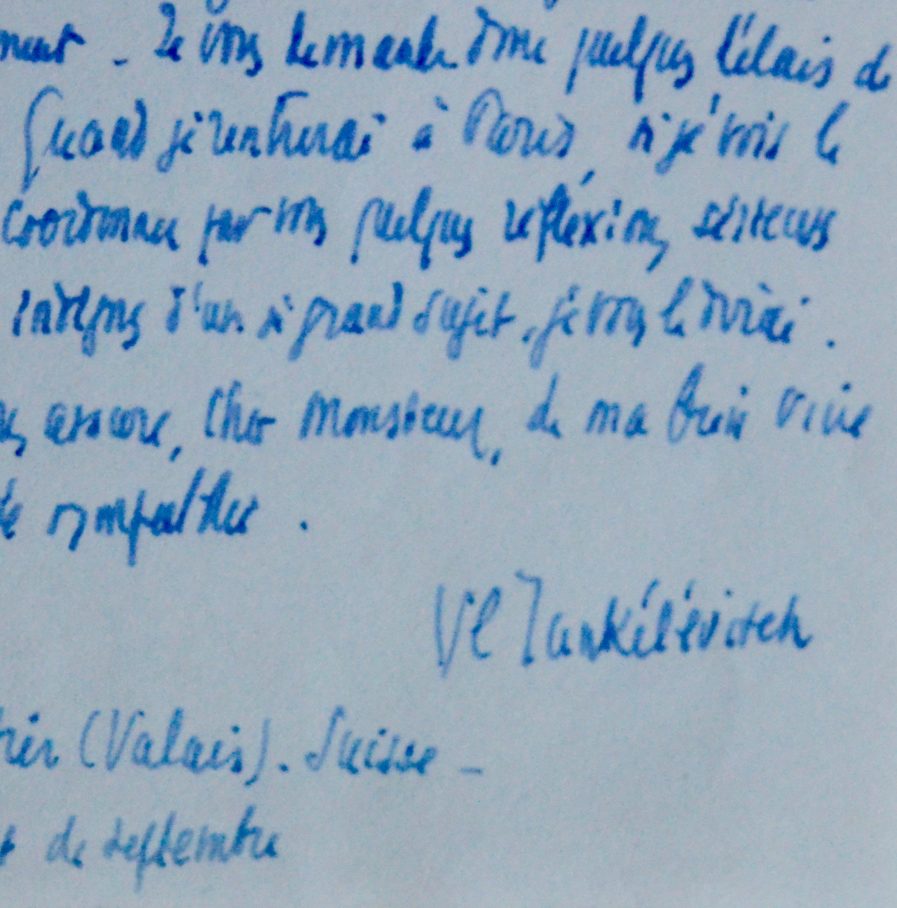 ment - Je vous demande donc quelques délais de
Quand je rentrerai à Paris si je vois le
coordonner pour vous quelques réflexions sérieuses
indignes d'un si grand sujet, je vous le dirai.
encore, Cher Monsieur, de ma bien vive
de sympathie.
Vl Jankélévitch
(Valais). Suisse -
de septembre